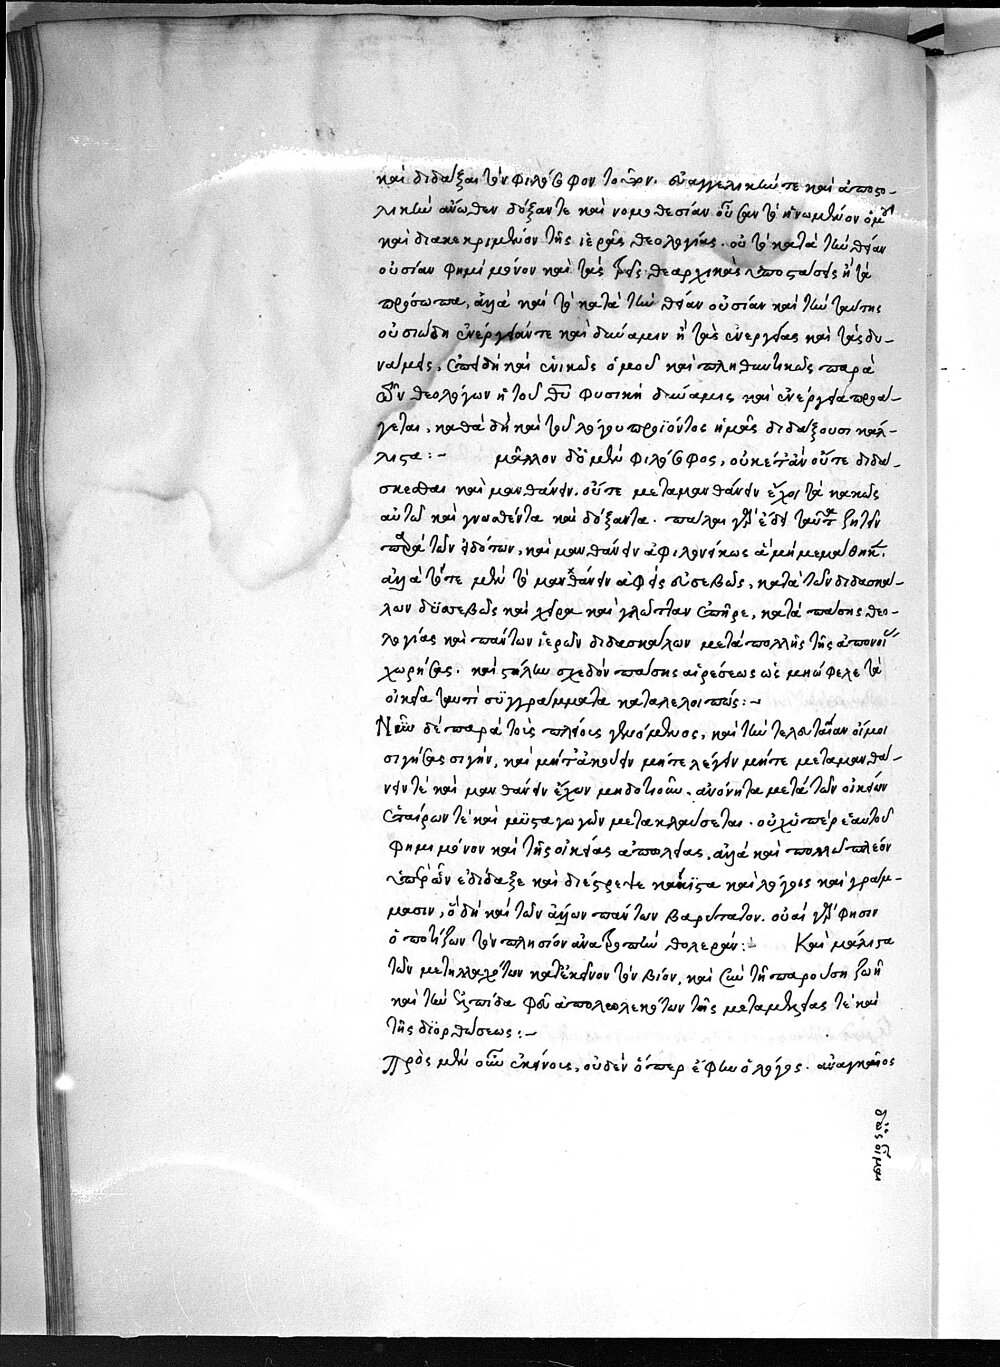 καὶ διδάξαι τὸν φιλόσοφον τοῦτον. εὐαγγελικῶν τε καὶ ἀποστο-
λικῶν ἄνωθεν δόξαν τε καὶ νομοθεσίαν οὖσαν τὸ ἡνωμένον ὁμοῦ
καὶ διακεκριμένον τῆς ἱερᾶς θεολογίας. οὐ τὸ κατὰ τὴν θείαν
οὐσίαν φημὶ μόνον καὶ τὰς τρεῖς θεαρχικὰς ὑποστάσεις ἢ τὰ
πρόσωπα, ἀλλὰ καὶ τὸ κατὰ τὴν θείαν οὐσίαν καὶ τὴν ταύτης
οὐσιώδη ἐνέργειάν τε καὶ δύναμιν ἢ τὰς ἐνεργείας καὶ τὰς δυ-
νάμεις. ἐπειδὴ καὶ ἑνικῶς ὁμοῦ καὶ πληθυντικῶς παρὰ
τῶν θεολόγων ἡ τοῦ θεοῦ φυσικὴ δύναμις καὶ ἐνέργεια προά-
γεται. καθὰ δὴ καὶ τοῦ λόγου προϊόντος ἡμᾶς διδάξουσι κάλ-
λιστα :- μᾶλλον δὲ ὁ μὲν φιλόσοφος, οὐκέτ' ἂν οὔτε διδά-
σκεσθαι καὶ μανθάνειν. οὔτε μεταμανθάνειν ἔχοι τὰ κακῶς
αὐτῷ καὶ γνωσθέντα καὶ δόξαντα. πάλαι γὰρ ἔδει ταῦτα ζητεῖν
παρὰ τῶν εἰδότων, καὶ μανθάνειν ἀφιλονείκως ἃ μὴ μεμαθήκει.
ἀλλὰ τότε μὲν τὸ μανθάνειν ἀφεὶς εὐσεβῶς, κατὰ τῶν διδασκά-
λων δυσσεβῶς καὶ χεῖρα καὶ γλῶτταν ἐπῆρε, κατὰ πάσης θεο-
λογίας καὶ πάντων ἱερῶν διδασκάλων μετὰ πολλῆς τῆς ἀπονοίας
χωρήσας. καὶ στήλην σχεδὸν πάσης αἱρέσεως ὡς μὴ ὤφελε τὰ
οἰκεῖα ταυτὶ συγγράμματα καταλελοιπώς :-
Νῦν δὲ παρὰ τοὺς πλείους γενόμενος, καὶ τὴν τελευταίαν οἴμοι
σιγήσας σιγήν, καὶ μήτ' ἀκούειν μήτε λέγειν μήτε μεταμανθά-
νειν τε καὶ μανθάνειν ἔχων μηδοτιοῦν. ἀνόνητα μετὰ τῶν οἰκείων
ἑταίρων τε καὶ μυσταγωγῶν μετακλαύσεται. οὐχ ὑπὲρ ἑαυτοῦ
φημὶ μόνον καὶ τῆς οἰκείας ἀπωλείας, ἀλλὰ καὶ πολλῷ πλέον
ὑπὲρ ὧν ἐδίδαξε καὶ διέστρεψε κάκιστα καὶ λόγοις καὶ γράμ-
μασιν, ὃ δὴ καὶ τῶν ἄλλων πάντων βαρύτατον. οὐαὶ γάρ φησιν
ὁ ποτίζων τὸν πλησίον ἀνατροπὴν θολεράν :- Καὶ μάλιστα
τῶν μετηλλαχότων κατ' ἐκεῖνον τὸν βίον, καὶ σὺν τῇ παρούσῃ ζωῇ
καὶ τὴν ἐλπίδα φεῦ ἀπολωλεκότων τῆς μεταμελείας τε καὶ
τῆς διορθώσεως :-
Πρὸς μὲν οὖν ἐκείνους, οὐδὲν ὅπερ ἔφην ὁ λόγος. ἀναγκαῖος
δὲ ὡς οἶμαι